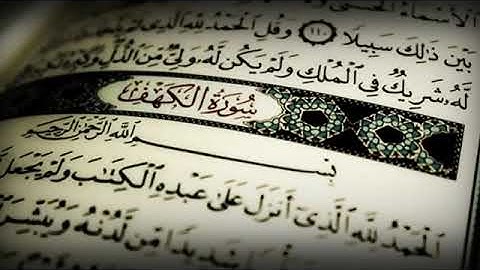 الْأَسْمَاءُ الْحُسْنَىٰ
بَيْنَ ذَٰلِكَ سَبِيلًا ١١٠ وَقُلِ الْحَمْدُ لِلَّهِ الَّذِي
لَّهُ شَرِيكٌ فِي الْمُلْكِ وَلَمْ يَكُن لَّهُ وَلِيٌّ مِّنَ الذُّلِّ وَكَبِّرْهُ
سُورَةُ الْكَهْفِ
بِسْمِ اللَّهِ الرَّحْمَٰنِ الرَّحِيمِ
الْحَمْدُ لِلَّهِ الَّذِي أَنزَلَ عَلَىٰ عَبْدِهِ الْكِتَابَ وَلَمْ يَجْعَل
شَدِيدًا مِّن لَّدُنْهُ وَيُبَشِّرَ